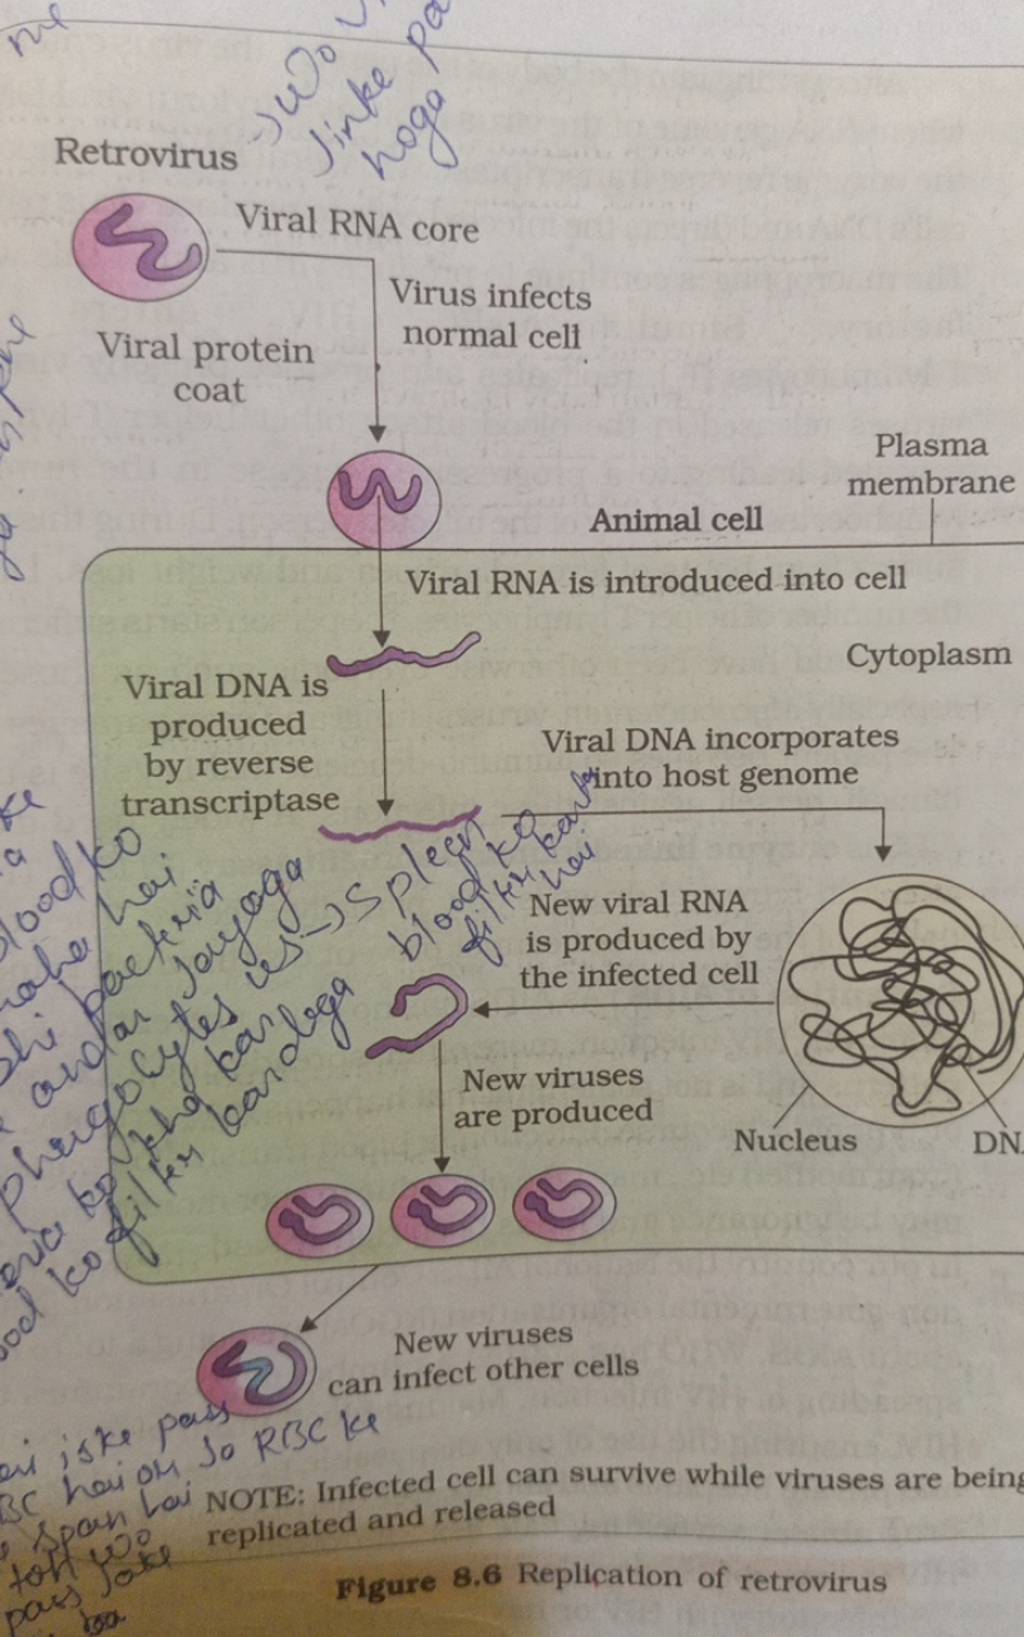 me
→ wo
jinke pa
hoga
Retrovirus
Viral RNA core
Virus infects
normal cell
Viral protein
coat
Plasma
membrane
Animal cell
Viral RNA is introduced into cell
Cytoplasm
Viral DNA is
produced
by reverse
transcriptase
Viral DNA incorporates
into host genome
→ Spleen
blood ko
filter karta
hai
blood ko
raha hai
bacteria
andar jayega
phagocytes us
ko kha kar
ko filter kar dega
New viral RNA
is produced by
the infected cell
New viruses
are produced
Nucleus
DN
New viruses
can infect other cells
iske pass
BC hai or jo RBC ke
span hai
toh wo
pass jake
NOTE: Infected cell can survive while viruses are being
replicated and released
Figure 8.6 Replication of retrovirus